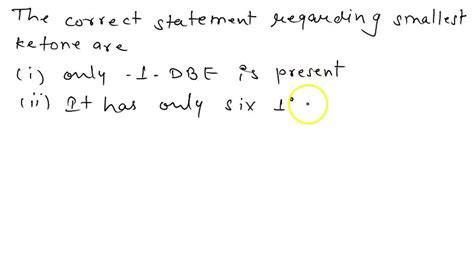 The correct statement regarding smallest
ketone are
(i) only -1- DBE is present
(ii) It has only six 1°